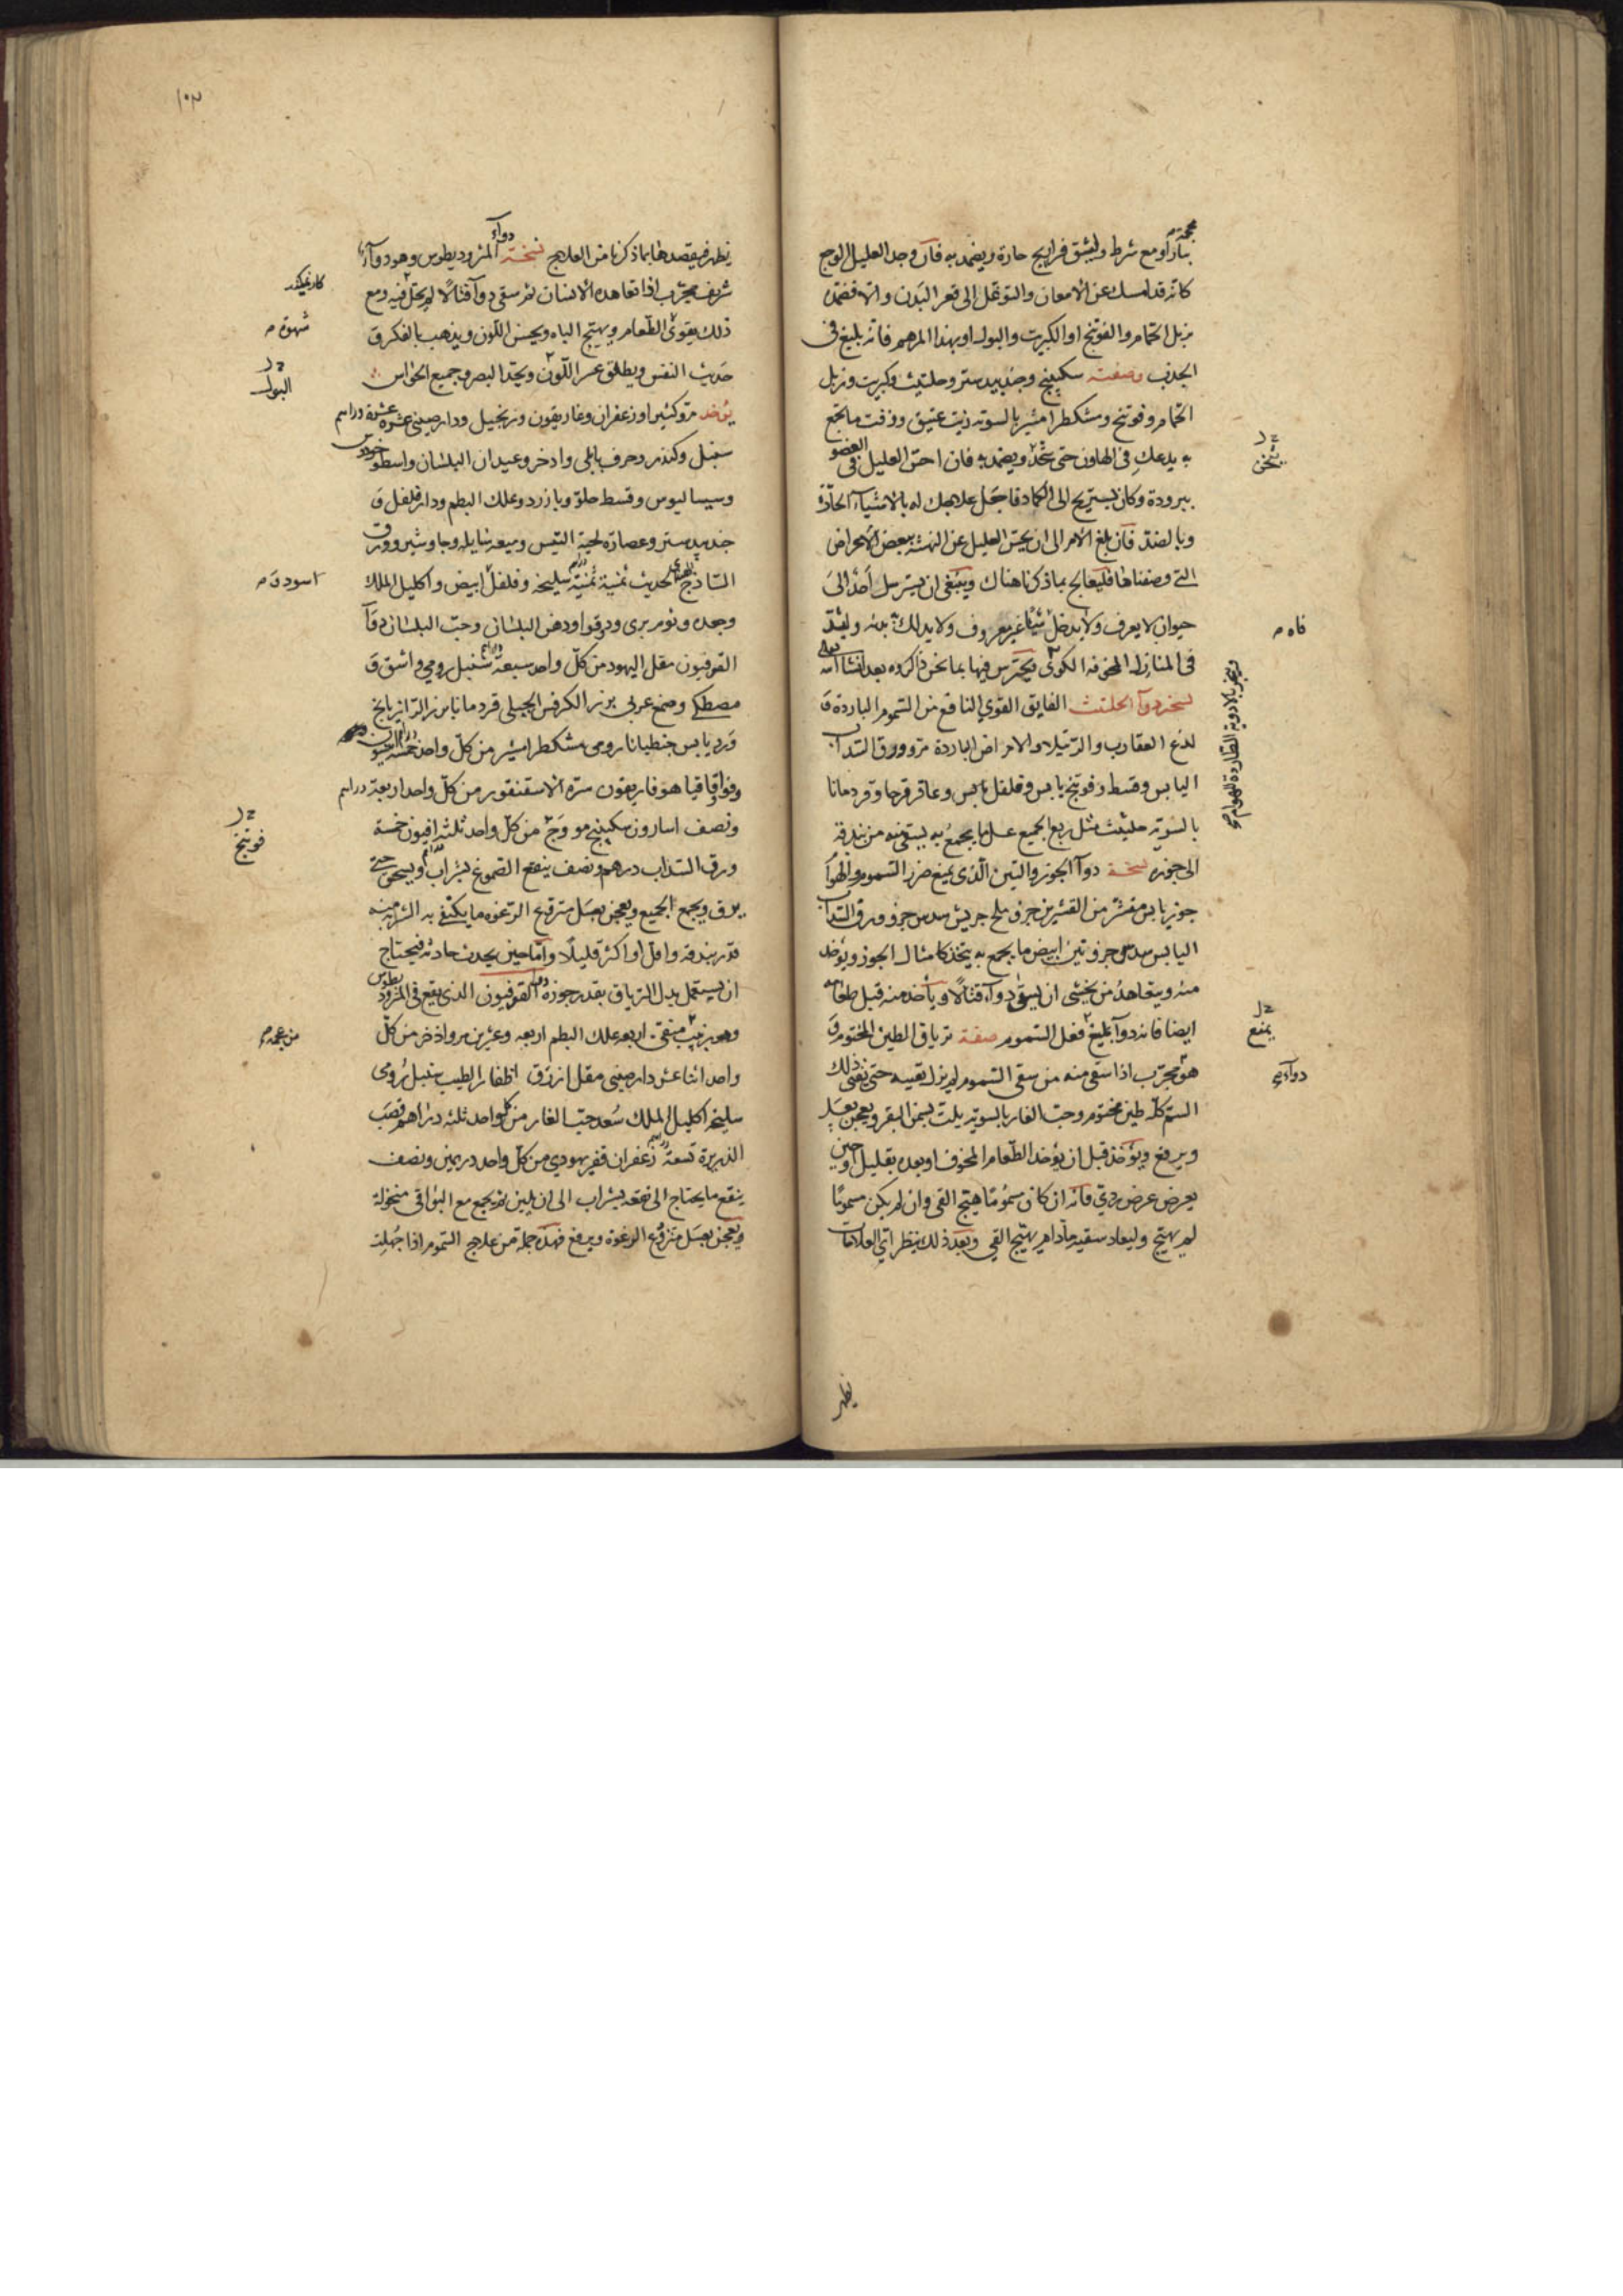 بنار او مع شرط وليشق فراريج حارة ويضمد به فان وجد العليل الوجع
كانه قد امسك عن الامعان والتوغل الى قعر البدن والا فضمده
بزبل الحمام والفوتنج او الكبريت والبول او بهذا المرهم فانه بليغ في
الجذب وصفته سكبينج وجندبيدستر وحلتيث وكبريت وزبل
الحمام وفوتنج ومشكطرامشير بالسويه زيت عتيق وزفت ما يجمع
به يدعك في الهاون حتى يثخن ويضمد به فان احس العليل في العضو
ببرودة وكان يستريح الى الكماد فاجعل علاجك له بالاشياء الحارة
وبالضد فان بلغ الامر الى ان يحس العليل عن النهشة ببعض الاعراض
التي وصفناها فليعالج بماذكرنا هناك وينبغي ان يسترسل احد الى
حيوان لا يعرف ولا يدخل شيئا غير معروف ولا يدلك به بدنه وليقد
في المنازل المخوفه الكوى ويحترس فيها بما نحن ذاكروه بعد انشا الله تعالى
نسخه دوآ الحلتيت الفايق القوي النافع من السموم الباردة و
لدغ العقارب والرتيلا والامراض الباردة مر وورق السداب
اليابس وقسط وفوتنج يابس وفلفل يابس وعاقرقرحا وقردمانا
بالسويه حلتيت مثل ربع الجميع عسل ما يجمع به يستقى منه من بندقة
الى جوزه نسخة دوآ الجوز والتين الذى يمنع ضرر السموم والهوا
جوز يابس مقشر من القشرين جزو ملح جريش سدس جزو ورق السداب
اليابس سدس جزو تين ابيض ما يجمع به يتخذ كامثال الجوز ويؤخذ
منه ويتعاهد من يخشى ان يسقى دوآء قتالا ويأخذ منه قبل طعامه
ايضا فانه دوآ بليغ فعل السموم صفة ترياق الطين المختوم و
هو مجرب اذا سقى منه من سقى السموم لم يزل يقييه حتى يقى ذلك
السم كله طين مختوم وحب الغار بالسويه يلت بسمن البقر ويعجن بعسل
ويرفع ويؤخذ قبل ان يؤخذ الطعام المخوف او بعده بقليل او حين
يعرض عرض ردي فانه ان كان مسموما هيج القى وان لم يكن مسموما
لم يهيج وليعاد سقيه مادام يهيج القي وبعد ذلك ينظر اي العلامات
يظهر
يثخن
فاه
ويبخر بالادوية الطاردة للهوام
يمنع
دوآء
١٠٣
يظهر فيقصدها بماذكرنا من العلاج نسخة دوآء المثروديطوس وهو دوآء
شريف مجرب اذا تعاهده الانسان ثم سقى دوآ قتالا لم يحك فيه ومع
ذلك يقوى الطعام ويهيج الباه ويحسن اللون ويذهب بالفكر و
حديث النفس ويطلق عسر اللون ويحد البصر وجميع الحواس
يؤخذ مر وكثيرا وزعفران وغاريقون وزنجبيل ودارصينى عشرة عشرة دراهم
سنبل وكندر وحرف بابلى واذخر وعيدان البلسان واسطوخودوس
وسيساليوس وقسط حلو وبازرد وعلك البطم ودارفلفل و
جندبيدستر وعصارة لحية التيس وميعه سايله وجاوشير وورق
الساذج الهندى الحديث ثمنية ثمنية دراهم سليخه وفلفل ابيض واكليل الملك
وجعده وثوم برى ودوقوا ودهن البلسان وحب البلسان دوآ
القوفيون مقل اليهود من كل واحد سبعة دراهم سنبل رومي واشق و
مصطكى وصمغ عربى بزر الكرفس الجبلى قردمانا بزر الرازيانج
ورد يابس جنطيانا رومى مشكطرامشير من كل واحد خمسة دراهم
وفو اقاقيا هوفاريقون سرة الاسقنقور من كل واحد اربعة دراهم
ونصف اسارون سكبينج مو وج من كل واحد ثلثه افيون خمسة
ورق السذاب درهم ونصف ينقع الصموغ بشراب ويسحق حتى
يرق ويجمع الجميع ويعجن بعسل منزوع الرغوه ما يكتفى به الشربة منه
قدر بندقه واقل او اكثر قليلا واما حين يحدث حادثه فيحتاج
ان يستعمل بدل الترياق بقدر جوزه دوآ القوفيون الذى يقع في المثروديطوس
وهو زبيب منقى اربعه علك البطم اربعه وعشرين مر واذخر من كل
واحد اثنا عشر دارصينى مقل ازرق اظفار الطيب سنبل رومى
سليخه اكليل الملك سعد حب الغار من كل واحد ثلثه دراهم قصب
الذريرة تسعة دراهم زعفران قفر يهودي من كل واحد درهمين ونصف
ينقع ما يحتاج الى نقعه بشراب الى ان يلين ثم يجمع مع البواقى منخولة
ويعجن بعسل منزوع الرغوة ويرفع فهذه جملة من علاج السموم اذا جهلت
كار نميكند
شهوة
البول
اسود
فوتنج
من عجمه